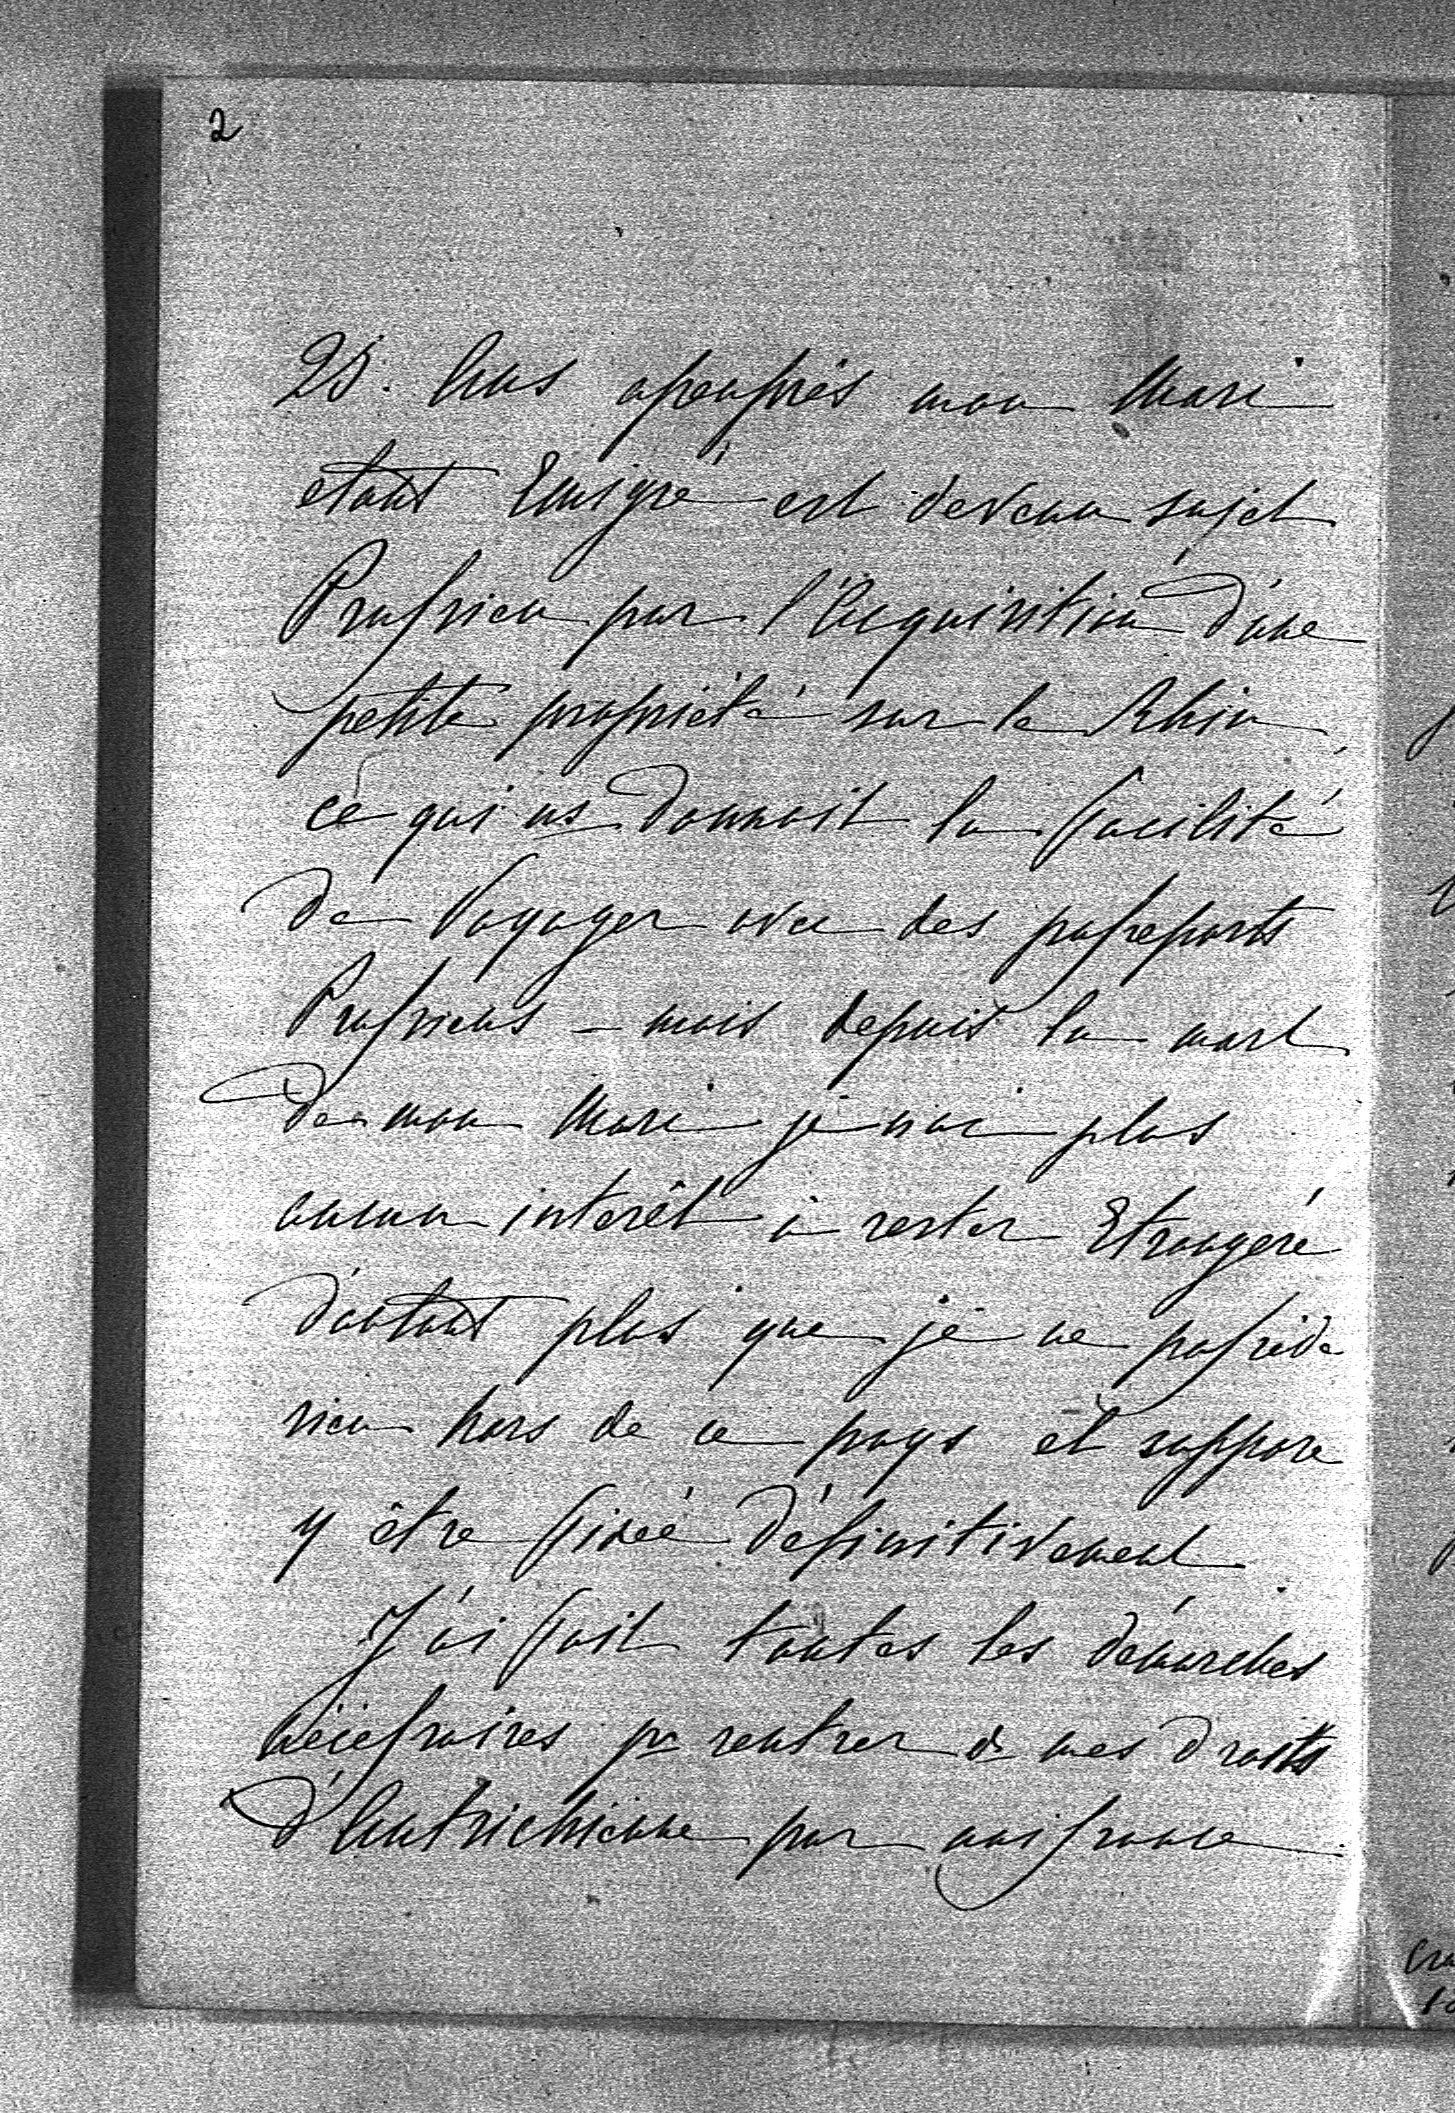 2
25. Ans apeuprès mon Mari
etant Emigré est devenu sujet
Prussien par l'Acquisition d'une
petite propriété sur le Rhin,
ce qui ns donnoit la facilité
de Voyager avec des passeports
Prussiens – mais depuis la mort
de mon Mari je n'ai plus
aucun interêt à rester Etrangère
d'autant plus que je ne possède
rien hors de ce pays et suppose
y être fixée définitivement
J'ai fait toutes les démarches
nécessaires pr rentrer ds mes droits
d'Autrichienne par naissance